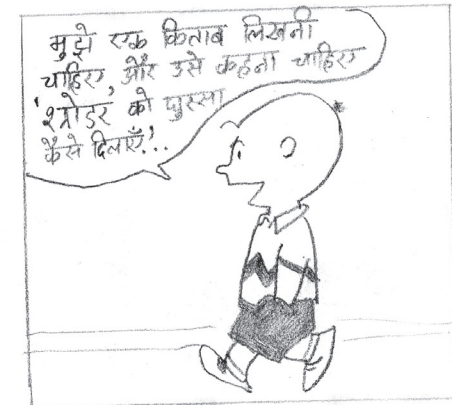 मुझे एक किताब लिखनी
चाहिए, और उसे कहना चाहिए
'श्रोडर को गुस्सा
कैसे दिलाएँ!'..